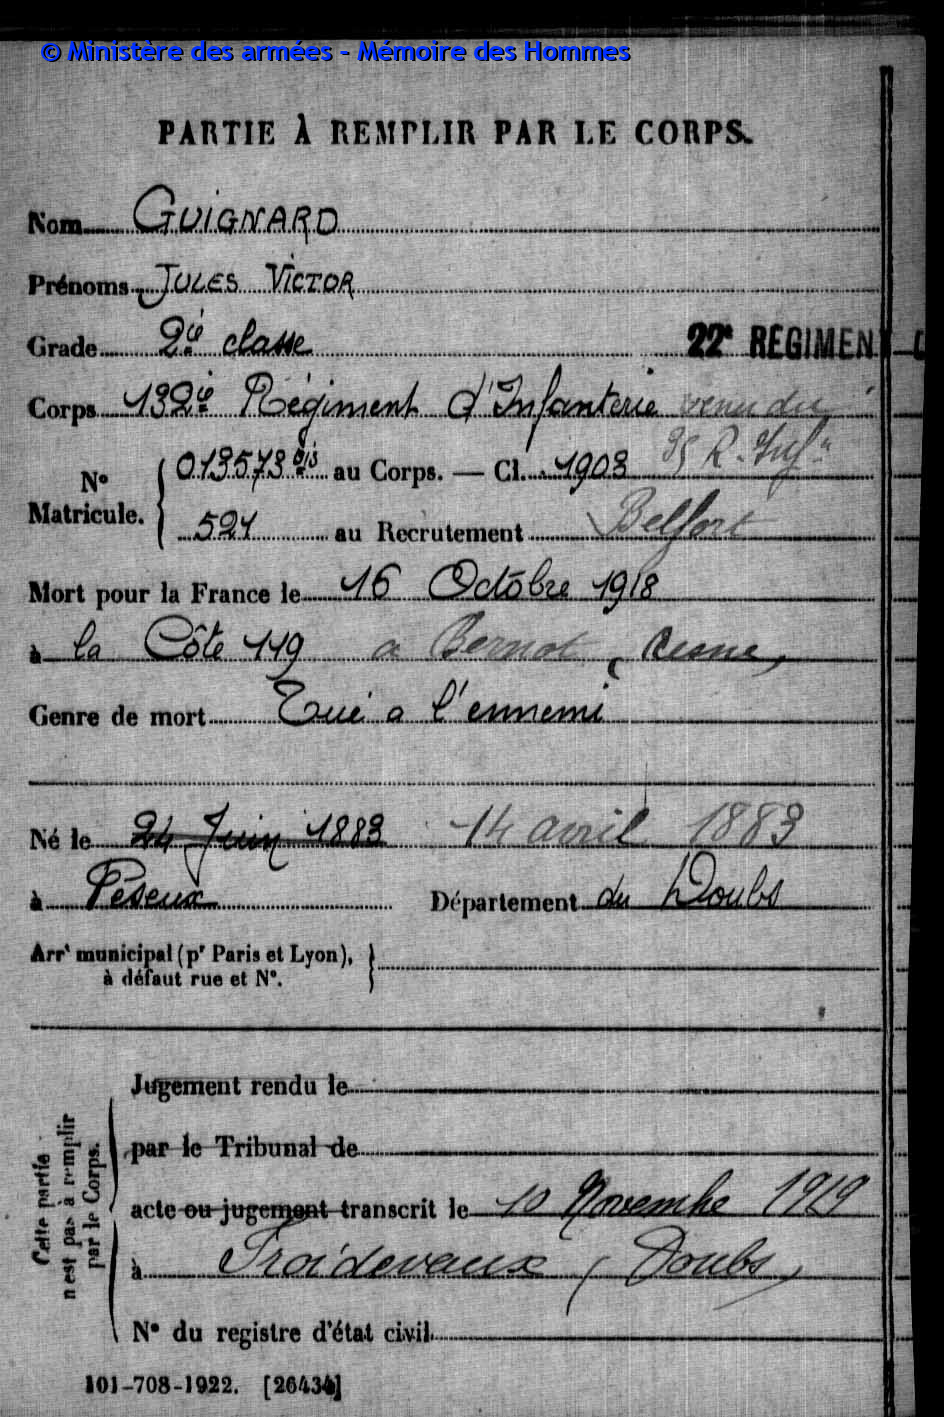 © Ministère des armées - Mémoire des Hommes
PARTIE À REMPLIR PAR LE CORPS.
Nom GUIGNARD
Prénoms JULES VICTOR
Grade 2è classe 22e REGIMENT
Corps 132è Régiment d'Infanterie venu du
35 R. Infie
N° Matricule. 013573 bis au Corps. — Cl. 1903
524 au Recrutement Belfort
Mort pour la France le 16 Octobre 1918
à la Côte 119 a Bernot (Aisne)
Genre de mort Tué a l'ennemi
Né le 24 Juin 1883 14 avril 1883
à Peseux Département du Doubs
Arrt municipal (pr Paris et Lyon),
à défaut rue et N°.
Cette partie
n'est pas à remplir
par le Corps.
Jugement rendu le
par le Tribunal de
acte ou jugement transcrit le 10 Novembre 1919
à Froidevaux (Doubs)
N° du registre d'état civil
101-708-1922. [26434]